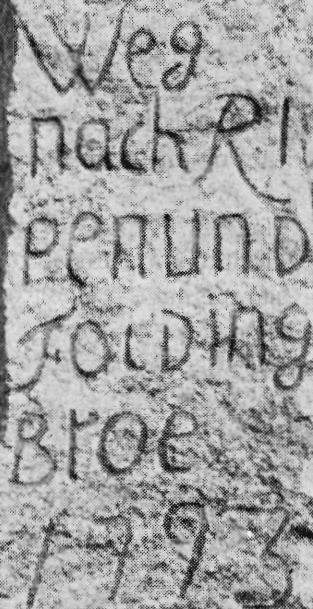 Weg
nach RI
PenunD
FolDing
Broe
1793